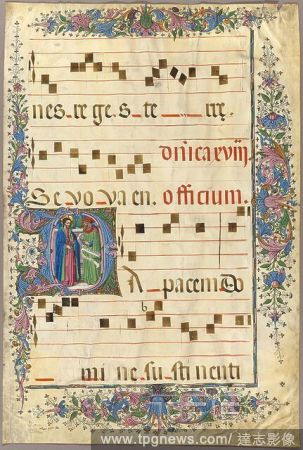 nes_re ge_s_te_ _ rrę.
dn̄ica xviij.
Se vo va en. officium.
DA_pacem Do
_ mi ne su sti nenti
www.tpgnews.com/ 達志影像